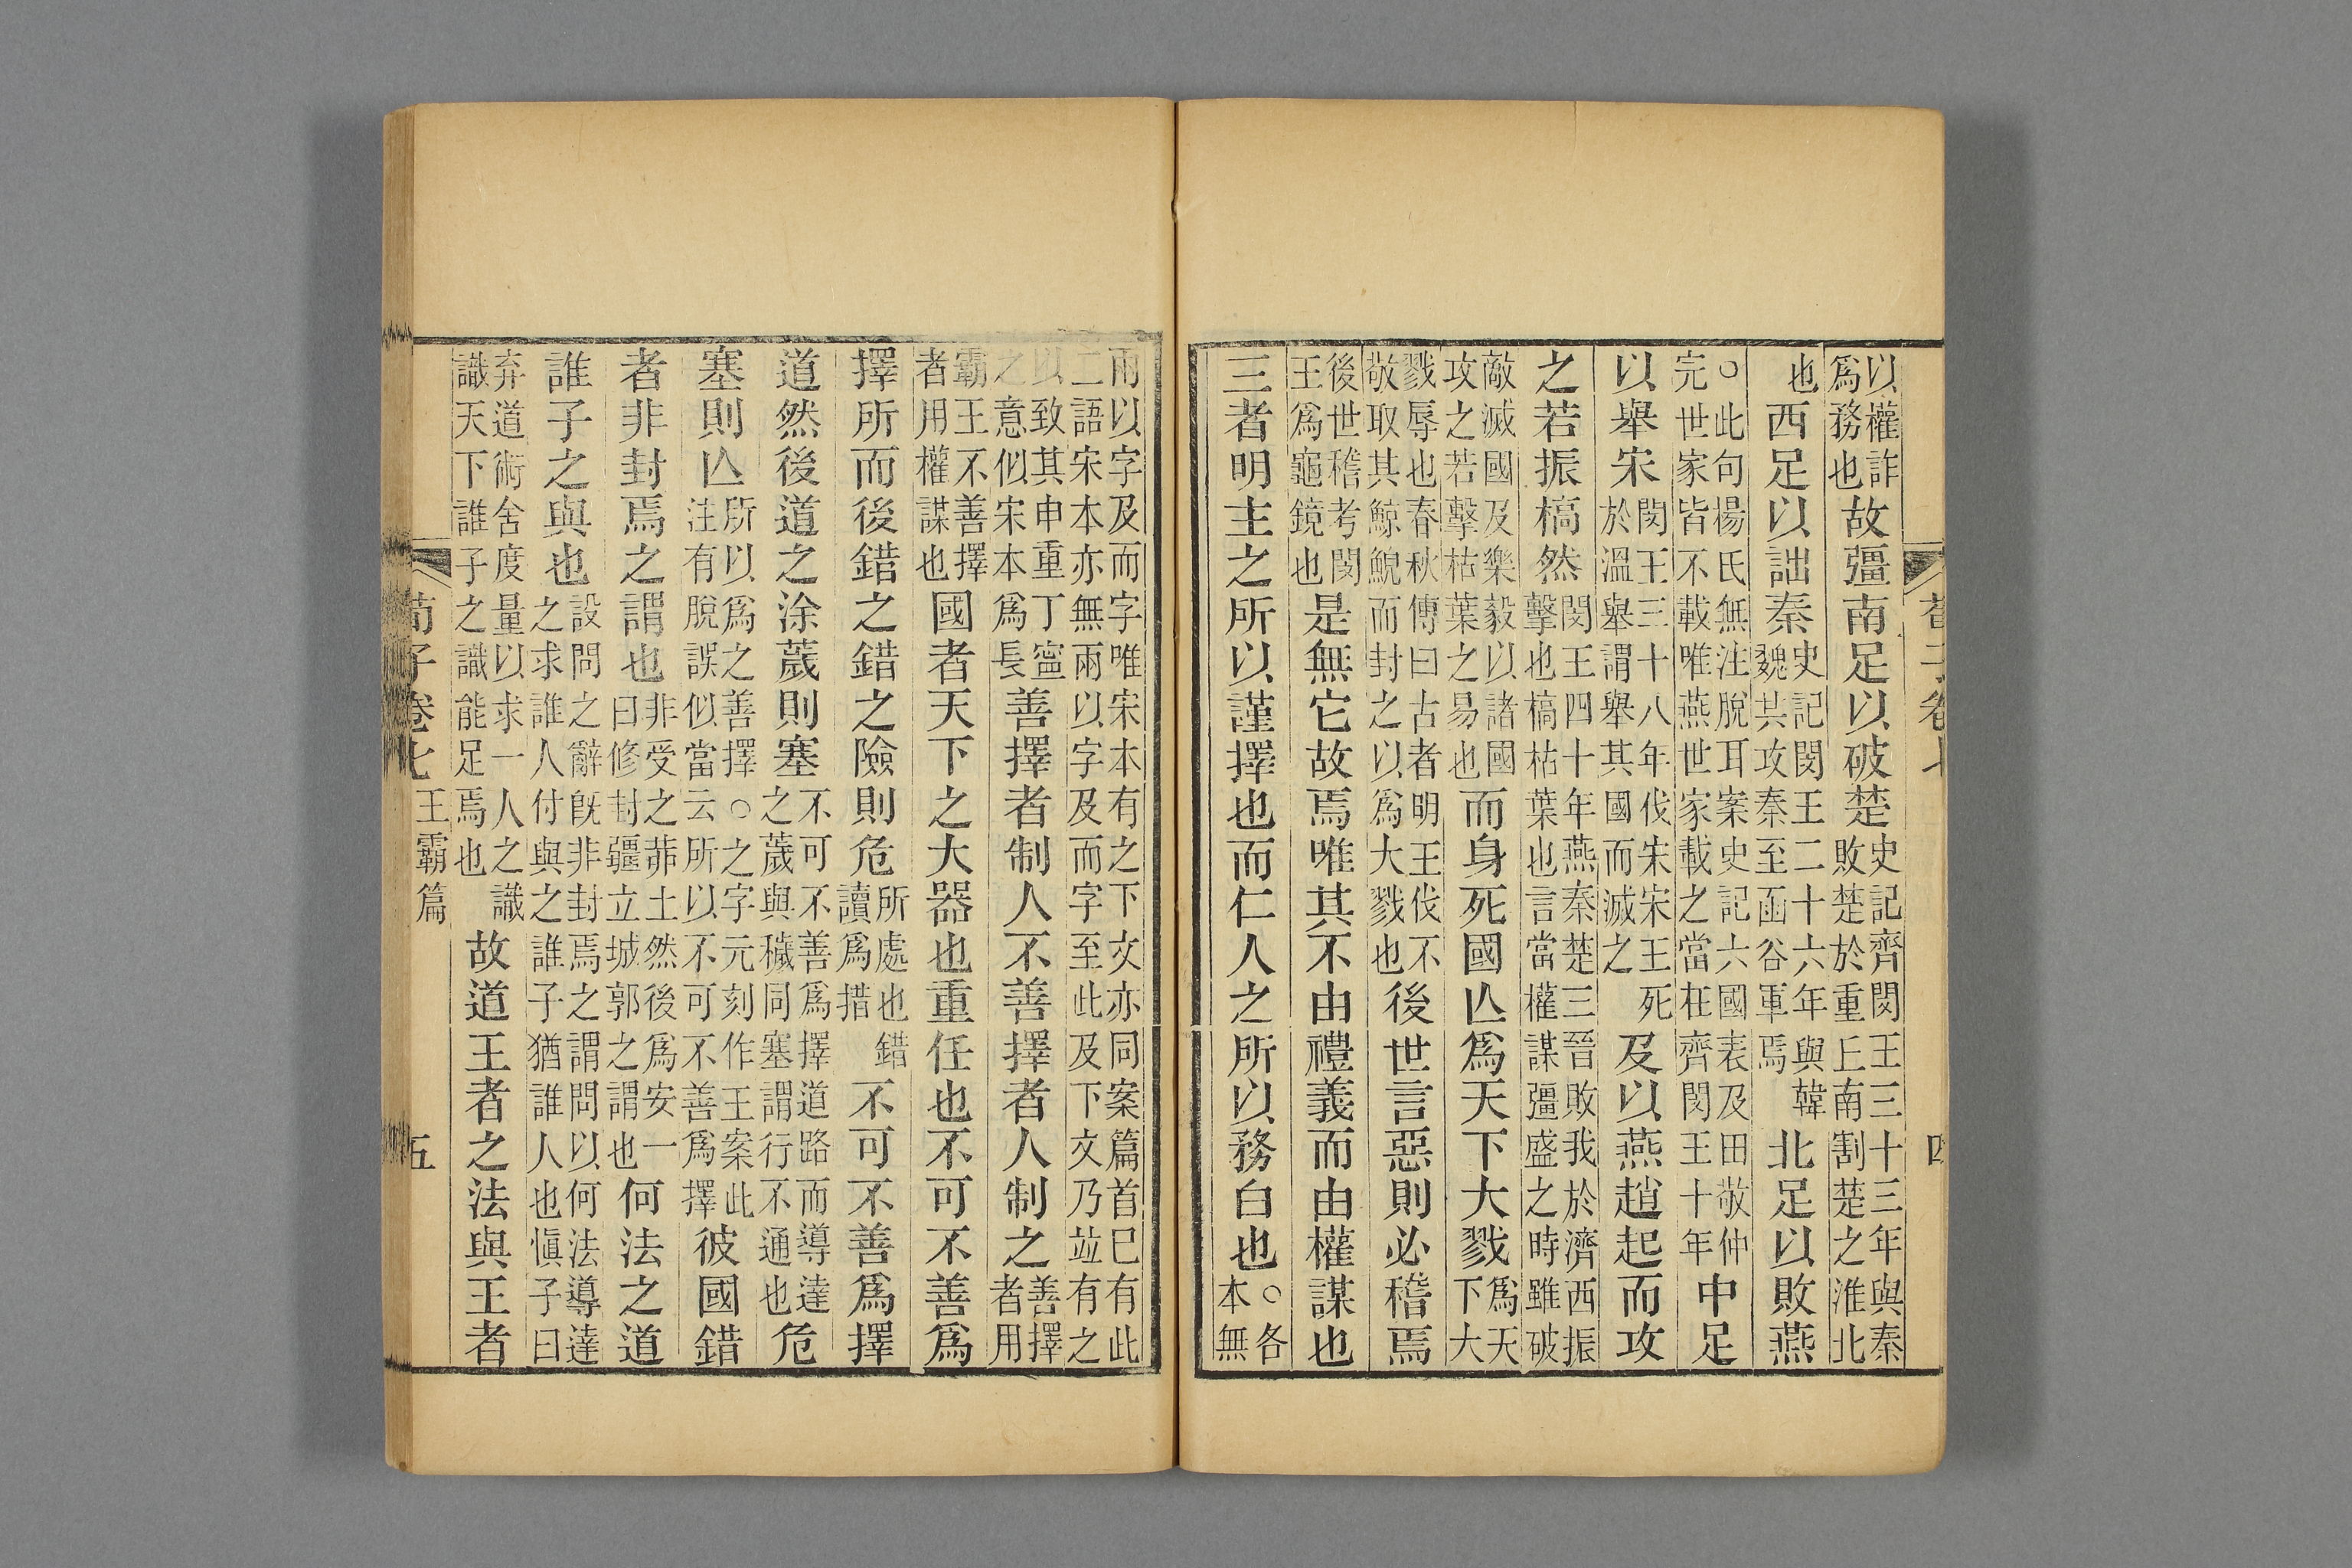 荀子卷七 四
以權詐
爲務也
故彊南足以破楚
史記齊閔王三十三年與秦
敗楚於重丘南割楚之淮北
也
西足以詘秦
史記閔王二十六年與韓
魏共攻秦至函谷軍焉
北足以敗燕
○此句楊氏無注脫耳案史記六國表及田敬仲
完世家皆不載唯燕世家載之當在齊閔王十年
中足
以舉宋
閔王三十八年伐宋宋王死
於溫舉謂舉其國而滅之
及以燕趙起而攻
之若振槁然
閔王四十年燕秦楚三晉敗我於濟西振
擊也槁枯葉也言當權謀彊盛之時雖破
敵滅國及樂毅以諸國
攻之若擊枯葉之易也
而身死國亾爲天下大戮
爲天
下大
戮辱也春秋傳曰古者明王伐不
敬取其鯨鯢而封之以爲大戮也
後世言惡則必稽焉
後世稽考閔
王爲龜鏡也
是無它故焉唯其不由禮義而由權謀也
三者明主之所以謹擇也而仁人之所以務白也
○各
本無
兩以字及而字唯宋本有之下文亦同案篇首已有此
二語宋本亦無兩以字及而字至此及下文乃竝有之
以致其申重丁寧
之意似宋本爲長
善擇者制人不善擇者人制之
善擇
者用
霸王不善擇
者用權謀也
國者天下之大器也重任也不可不善爲
擇所而後錯之錯之險則危
所處也錯
讀爲措
不可不善爲擇
道然後道之涂薉則塞
不可不善爲擇道路而導達
之薉與穢同塞謂行不通也
危
塞則亾
所以爲之善擇○之字元刻作王案此
注有脫誤似當云所以不可不善爲擇
彼國錯
者非封焉之謂也
非受之茆土然後爲安一
曰修封疆立城郭之謂也
何法之道
誰子之與也
設問之辭旣非封焉之謂問以何法導達
之求誰人付與之誰子猶誰人也愼子曰
弃道術舍度量以求一人之識
識天下誰子之識能足焉也
故道王者之法與王者
荀子卷七 王霸篇 五